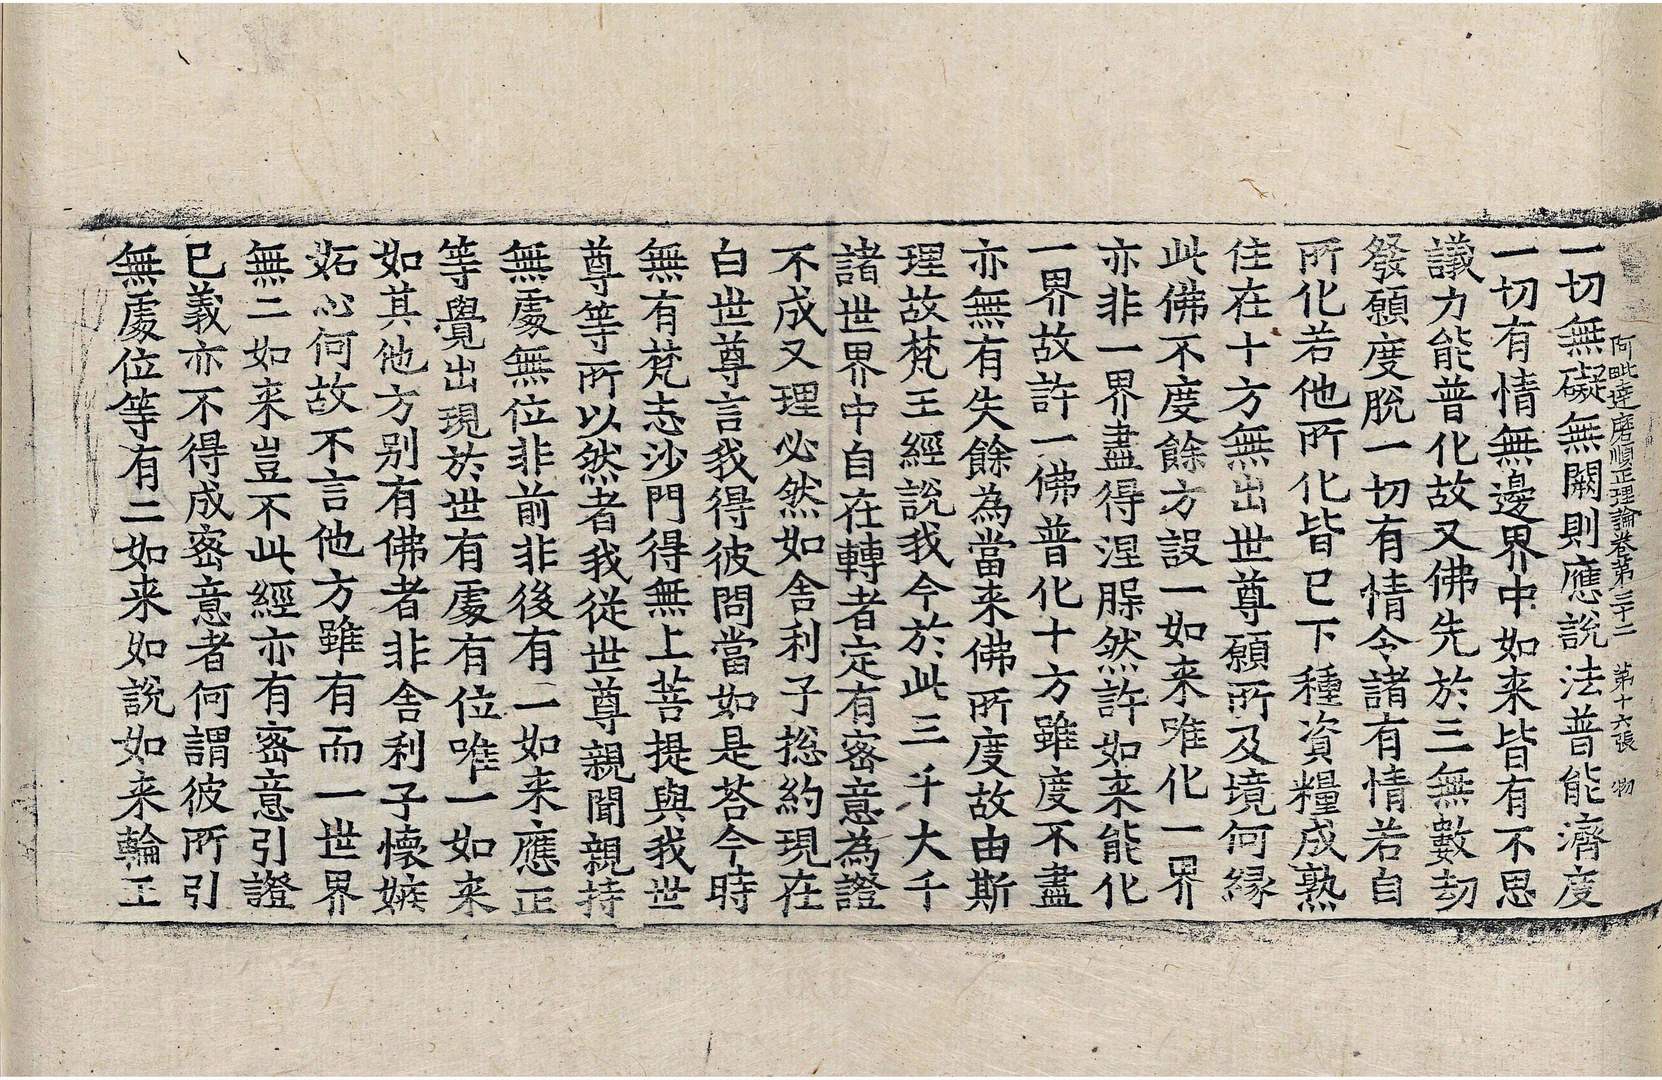 阿毗達磨順正理論卷第三十二 第十六張 物
一切無礙無闕則應說法普能濟度
一切有情無邊界中如来皆有不思
議力能普化故又佛先於三無數劫
發願度脫一切有情令諸有情若自
所化若他所化皆已下種資糧成熟
住在十方無出世尊願所及境何緣
此佛不度餘方設一如来唯化一界
亦非一界盡得涅腺然許如来能化
一界故許一佛普化十方雖度不盡
亦無有失餘為當来佛所度故由斯
理故梵王經說我今於此三千大千
諸世界中自在轉者定有密意為證
不成又理必然如舍利子揔約現在
白世尊言我得彼問當如是荅今時
無有梵志沙門得無上菩提與我世
尊等所以然者我從世尊親聞親持
無處無位非前非後有二如来應正
等覺出現於世有處有位唯一如来
如其他方別有佛者非舍利子懷嫉
妬心何故不言他方雖有而一世界
無二如来豈不此經亦有密意引證
已義亦不得成密意者何謂彼所引
無處位等有二如来如說如来輪王